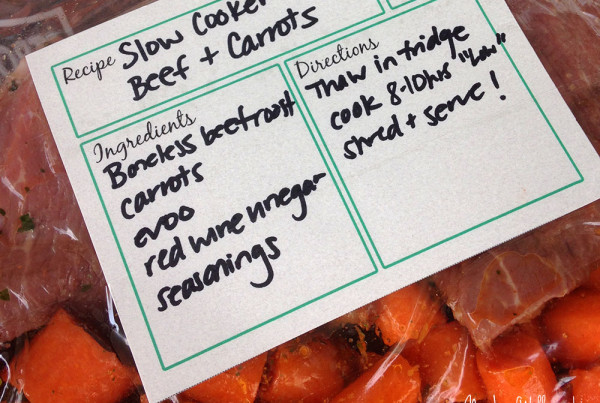 Recipe Slow Cooker
Beef + Carrots
Ingredients
Boneless beef roast
carrots
evoo
red wine vinegar
seasonings
Directions
Thaw in fridge
cook 8-10hrs "Low"
shred + serve!